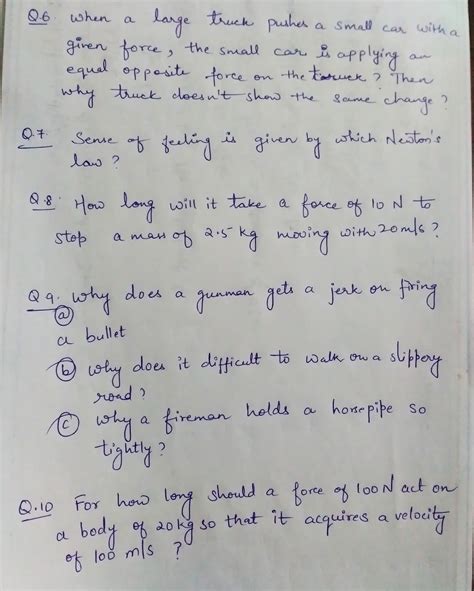 Q.6. when a large truck pushes a small car with a
given force, the small car is applying an
equal opposite force on the truck? Then
why truck doesn't show the same change?
Q.7 Sense of feeling is given by which Newton's
law?
Q.8. How long will it take a force of 10 N to
stop a mass of 2.5 kg moving with 20m/s?
Q9. why does a gunman gets a jerk on firing
(a)
a bullet
(b) why does it difficult to walk on a slippery
road?
(c) why a fireman holds a horsepipe so
tightly?
Q.10 For how long should a force of 100N act on
a body of 20kg so that it acquires a velocity
of 100 m/s ?